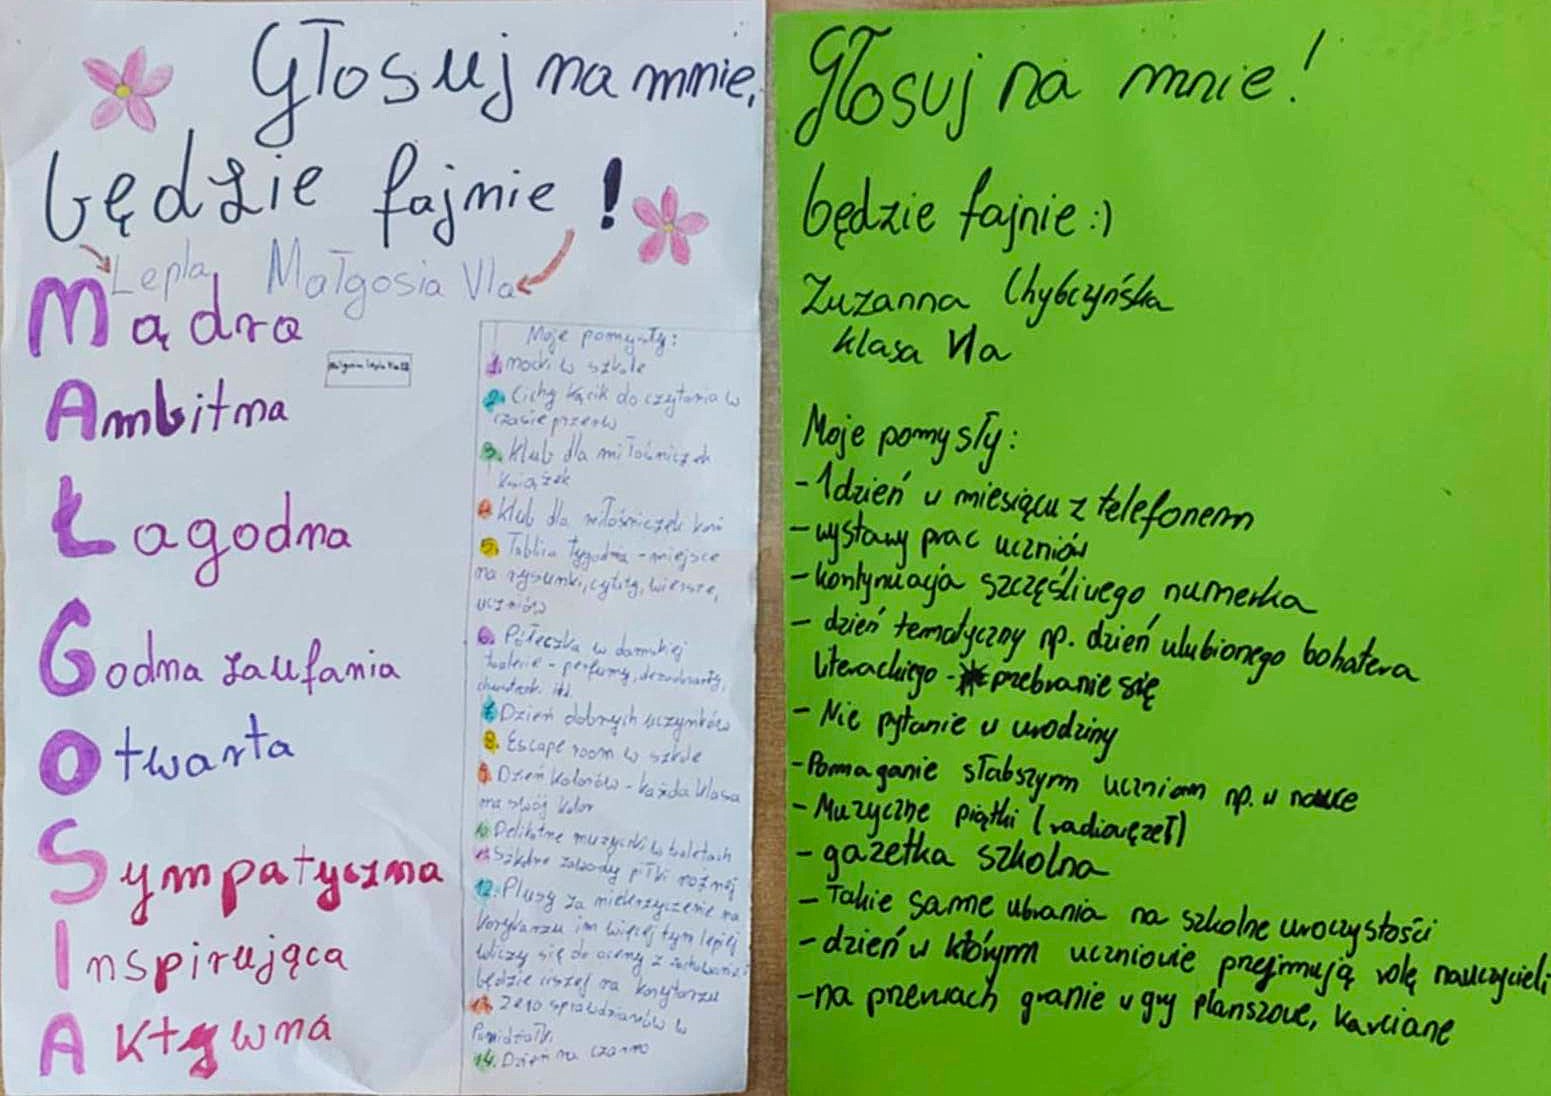 Głosuj na mnie,
będzie fajnie!
Lepla Małgosia VIa
Mądra
Ambitna
Łagodna
Godna zaufania
Otwarta
Sympatyczna
Inspirująca
Aktywna
Moje pomysły:
1. nocki w szkole
2. Cichy kącik do czytania w
czasie przerw
3. Klub dla miłośniczek
książek
4. Klub dla miłośniczek koni
5. Tablica tygodnia - miejsce
na rysunki, cytaty, wiersze,
uczniów
6. Półeczka w damskiej
toalecie - perfumy, dezodoranty,
itd.
7. Dzień dobrych uczynków
8. Escape room w szkole
9. Dzień kolorów - każda klasa
ma swój kolor
10. Delikatne muzyczki w toaletach
11. Szkolne zawody piłki nożnej
12. Plusy za niekrzyczenie na
korytarzu im więcej tym lepiej
wliczy się do oceny z zachowania
będzie ciszej na korytarzu
13. Zero sprawdzianów w
Poniedziałki
14. Dzień na czarno
Głosuj na mnie!
będzie fajnie :)
Zuzanna Chybczyńska
klasa VIa
Moje pomysły:
- 1 dzień w miesiącu z telefonem
- wystawy prac uczniów
- kontynuacja szczęśliwego numerka
- dzień tematyczny np. dzień ulubionego bohatera
literackiego - przebranie się
- Nie pytanie w urodziny
- Pomaganie słabszym uczniom np. w nauce
- Muzyczne piątki (radiowęzeł)
- gazetka szkolna
- Takie same ubrania na szkolne uroczystości
- dzień w którym uczniowie przejmują rolę nauczycieli
- na przerwach granie w gry planszowe, karciane